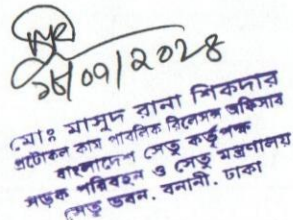 ১৮/০৭/২০২৪
মোঃ মাসুদ রানা শিকদার
প্রটোকল কাম পাবলিক রিলেসন্স অফিসার
বাংলাদেশ সেতু কর্তৃপক্ষ
সড়ক পরিবহন ও সেতু মন্ত্রণালয়
সেতু ভবন, বনানী, ঢাকা